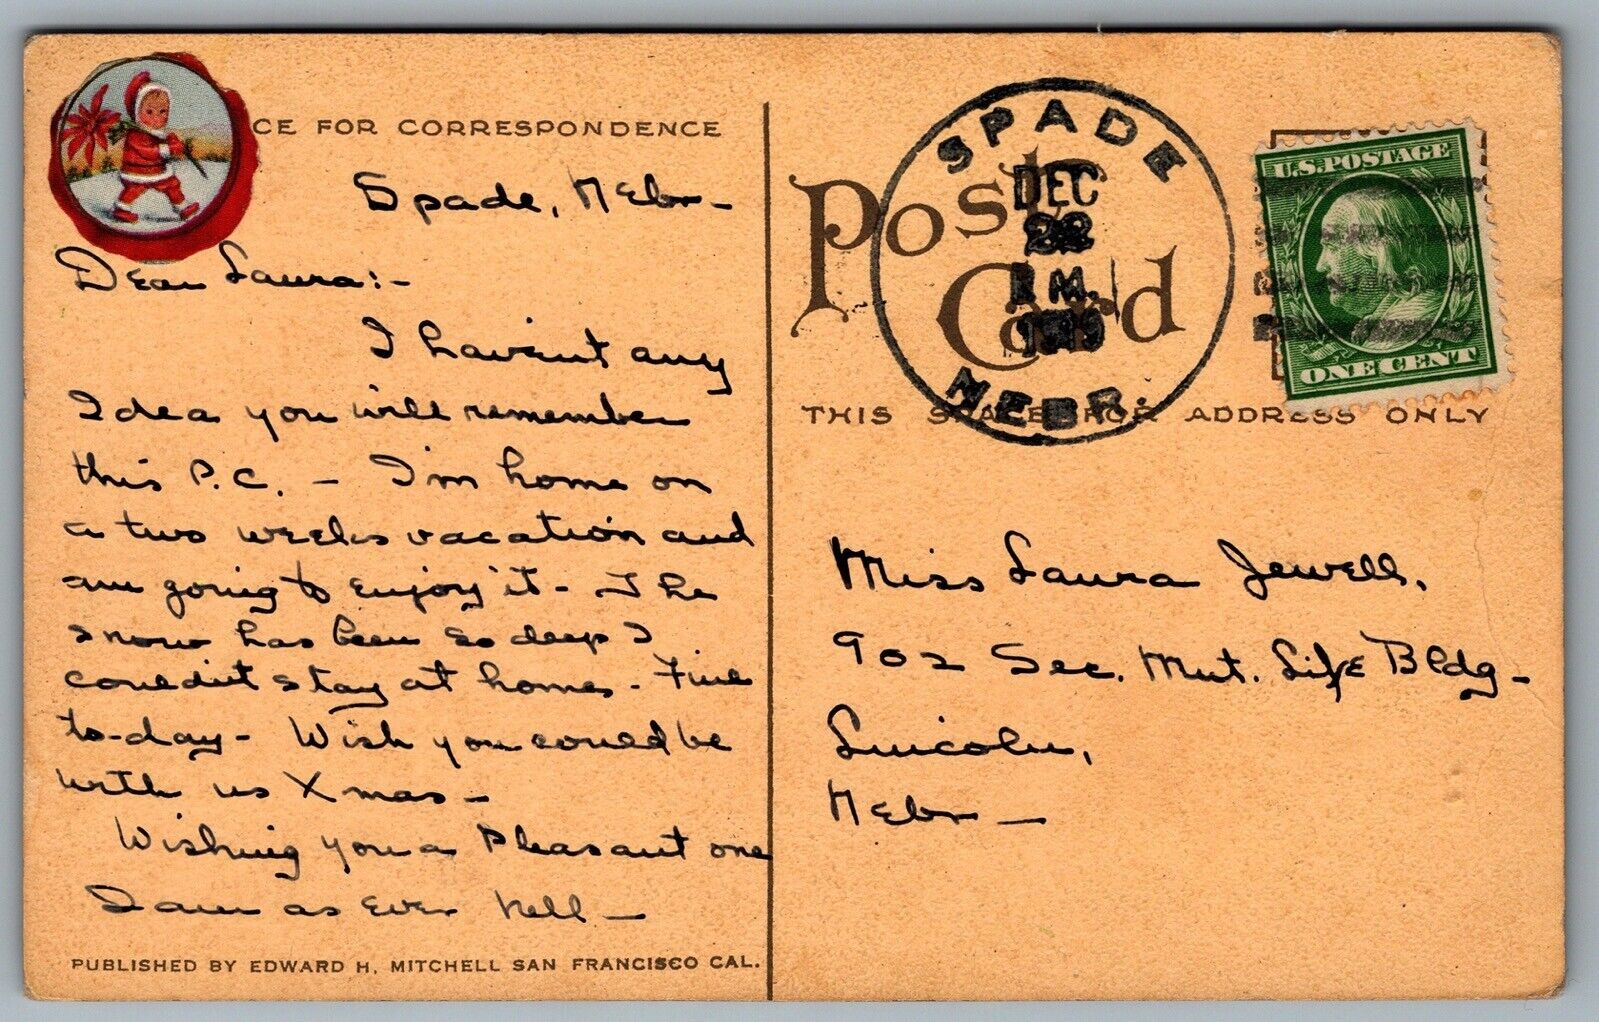 CE FOR CORRESPONDENCE
Spade, Nebr-
Dear Laura:-
I haven't any
Idea you will remember
this P.C. - I'm home on
a two weeks vacation and
am going to enjoy it - The
snow has been so deep I
couldn't stay at home. - Fine
to-day - Wish you could be
with us Xmas -
Wishing you a Pleasant one
I am as Ever Nell -
PUBLISHED BY EDWARD H. MITCHELL SAN FRANCISCO CAL.
Post Card
SPADE
DEC
M.
NEBR.
U.S. POSTAGE
ONE CENT
THIS SPACE FOR ADDRESS ONLY
Miss Laura Jewell,
902 Sec. Mut. Life Bldg -
Lincoln,
Nebr -